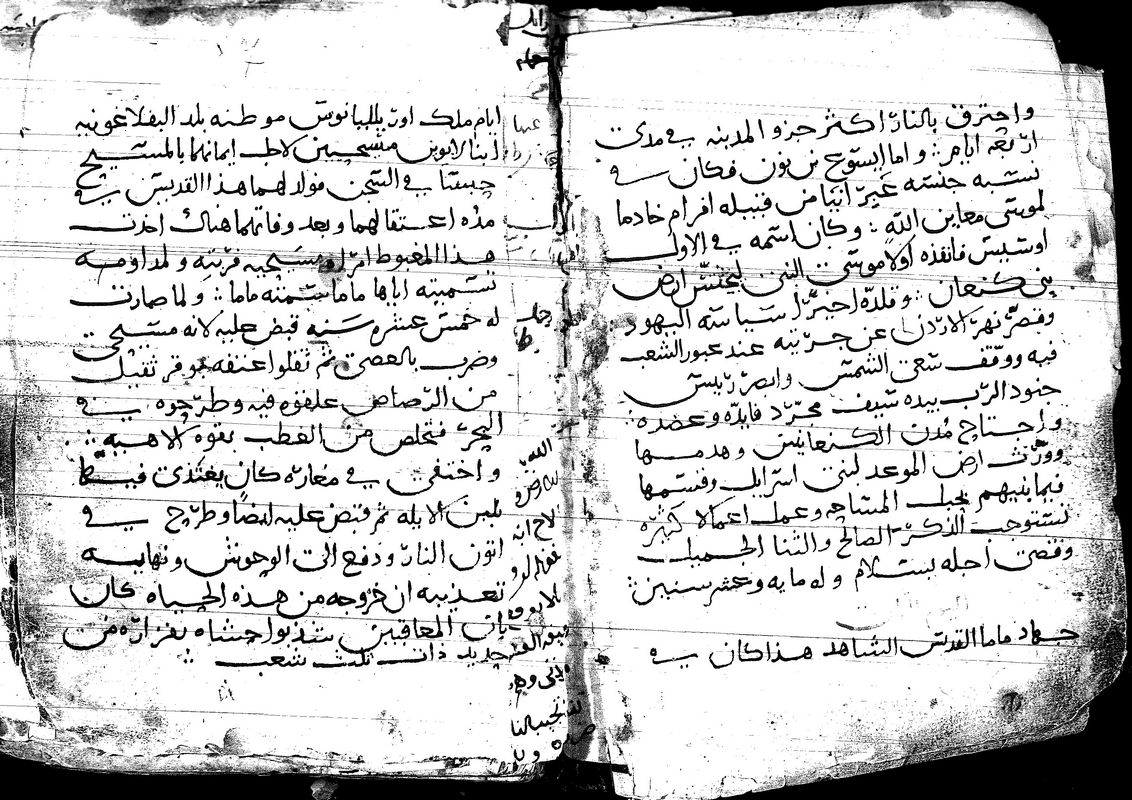 واحترق بالنار اكثر جزو المدينه في مدى
اربعه ايام؛ واما ايسوع بن نون فكان في
نسبه جنسه من قبيله افرام خادما
لموسى معاين الله؛ وكان اسمه في الاول
اوسيس فانفذه اولا موسى النبي ليجسس ارض
بني كنعان؛ وقلده اخيرا سياسه اليهود
وقصر نهر الاردن عن جريته عند عبور الشعب
فيه ووقف سعى الشمس وابصر رييس
جنود الرب بيده سيف مجرد فايده وعضده
واجتاح مدن الكنعانيين وهدمها
وورث ارض الموعد لبني اسراييل وقسمها
فيما بينهم بحبل المساحه وعمل اعمالا كثيره
تستوجب الذكر الصالح والثنا الجميل
وقضى اجله بسلام وله مايه وعشر سنين؛
جهاد ماما القديس الشاهد هذا كان في
ايام ملك اوريليانوس موطنه بلد البفلاغونيه
ابنا لابوين مسيحيين لاجل ايمانهما بالمسيح
حبسا في السجن فولد لهما هذا القديس في
مده اعتقالهما وبعد وفاتهما هناك اخذت
هذا المغبوط امراه مسيحيه فربته ولمداومه
تسميته اياها ماما سمته ماما؛ ولما صارت
له خمس عشره سنه قبض عليه لانه مسيحي
وضرب بالعصي ثم ثقلوا عنقه بوقر ثقيل
من الرصاص علقوه فيه وطرحوه في
البحر فتخلص من العطب بقوه الاهيه؛
واختفى في مغاره كان يغتذي فيها
بلبن الايله ثم قبض عليه ايضا وطرح في
اتون النار ودفع الى الوحوش ونهايه
تعذيبه ان خروجه من هذه الحياه كان
بان المعاقبين شذبوا حشاه بغرازه من
حديد ذات ثلث شعب؛